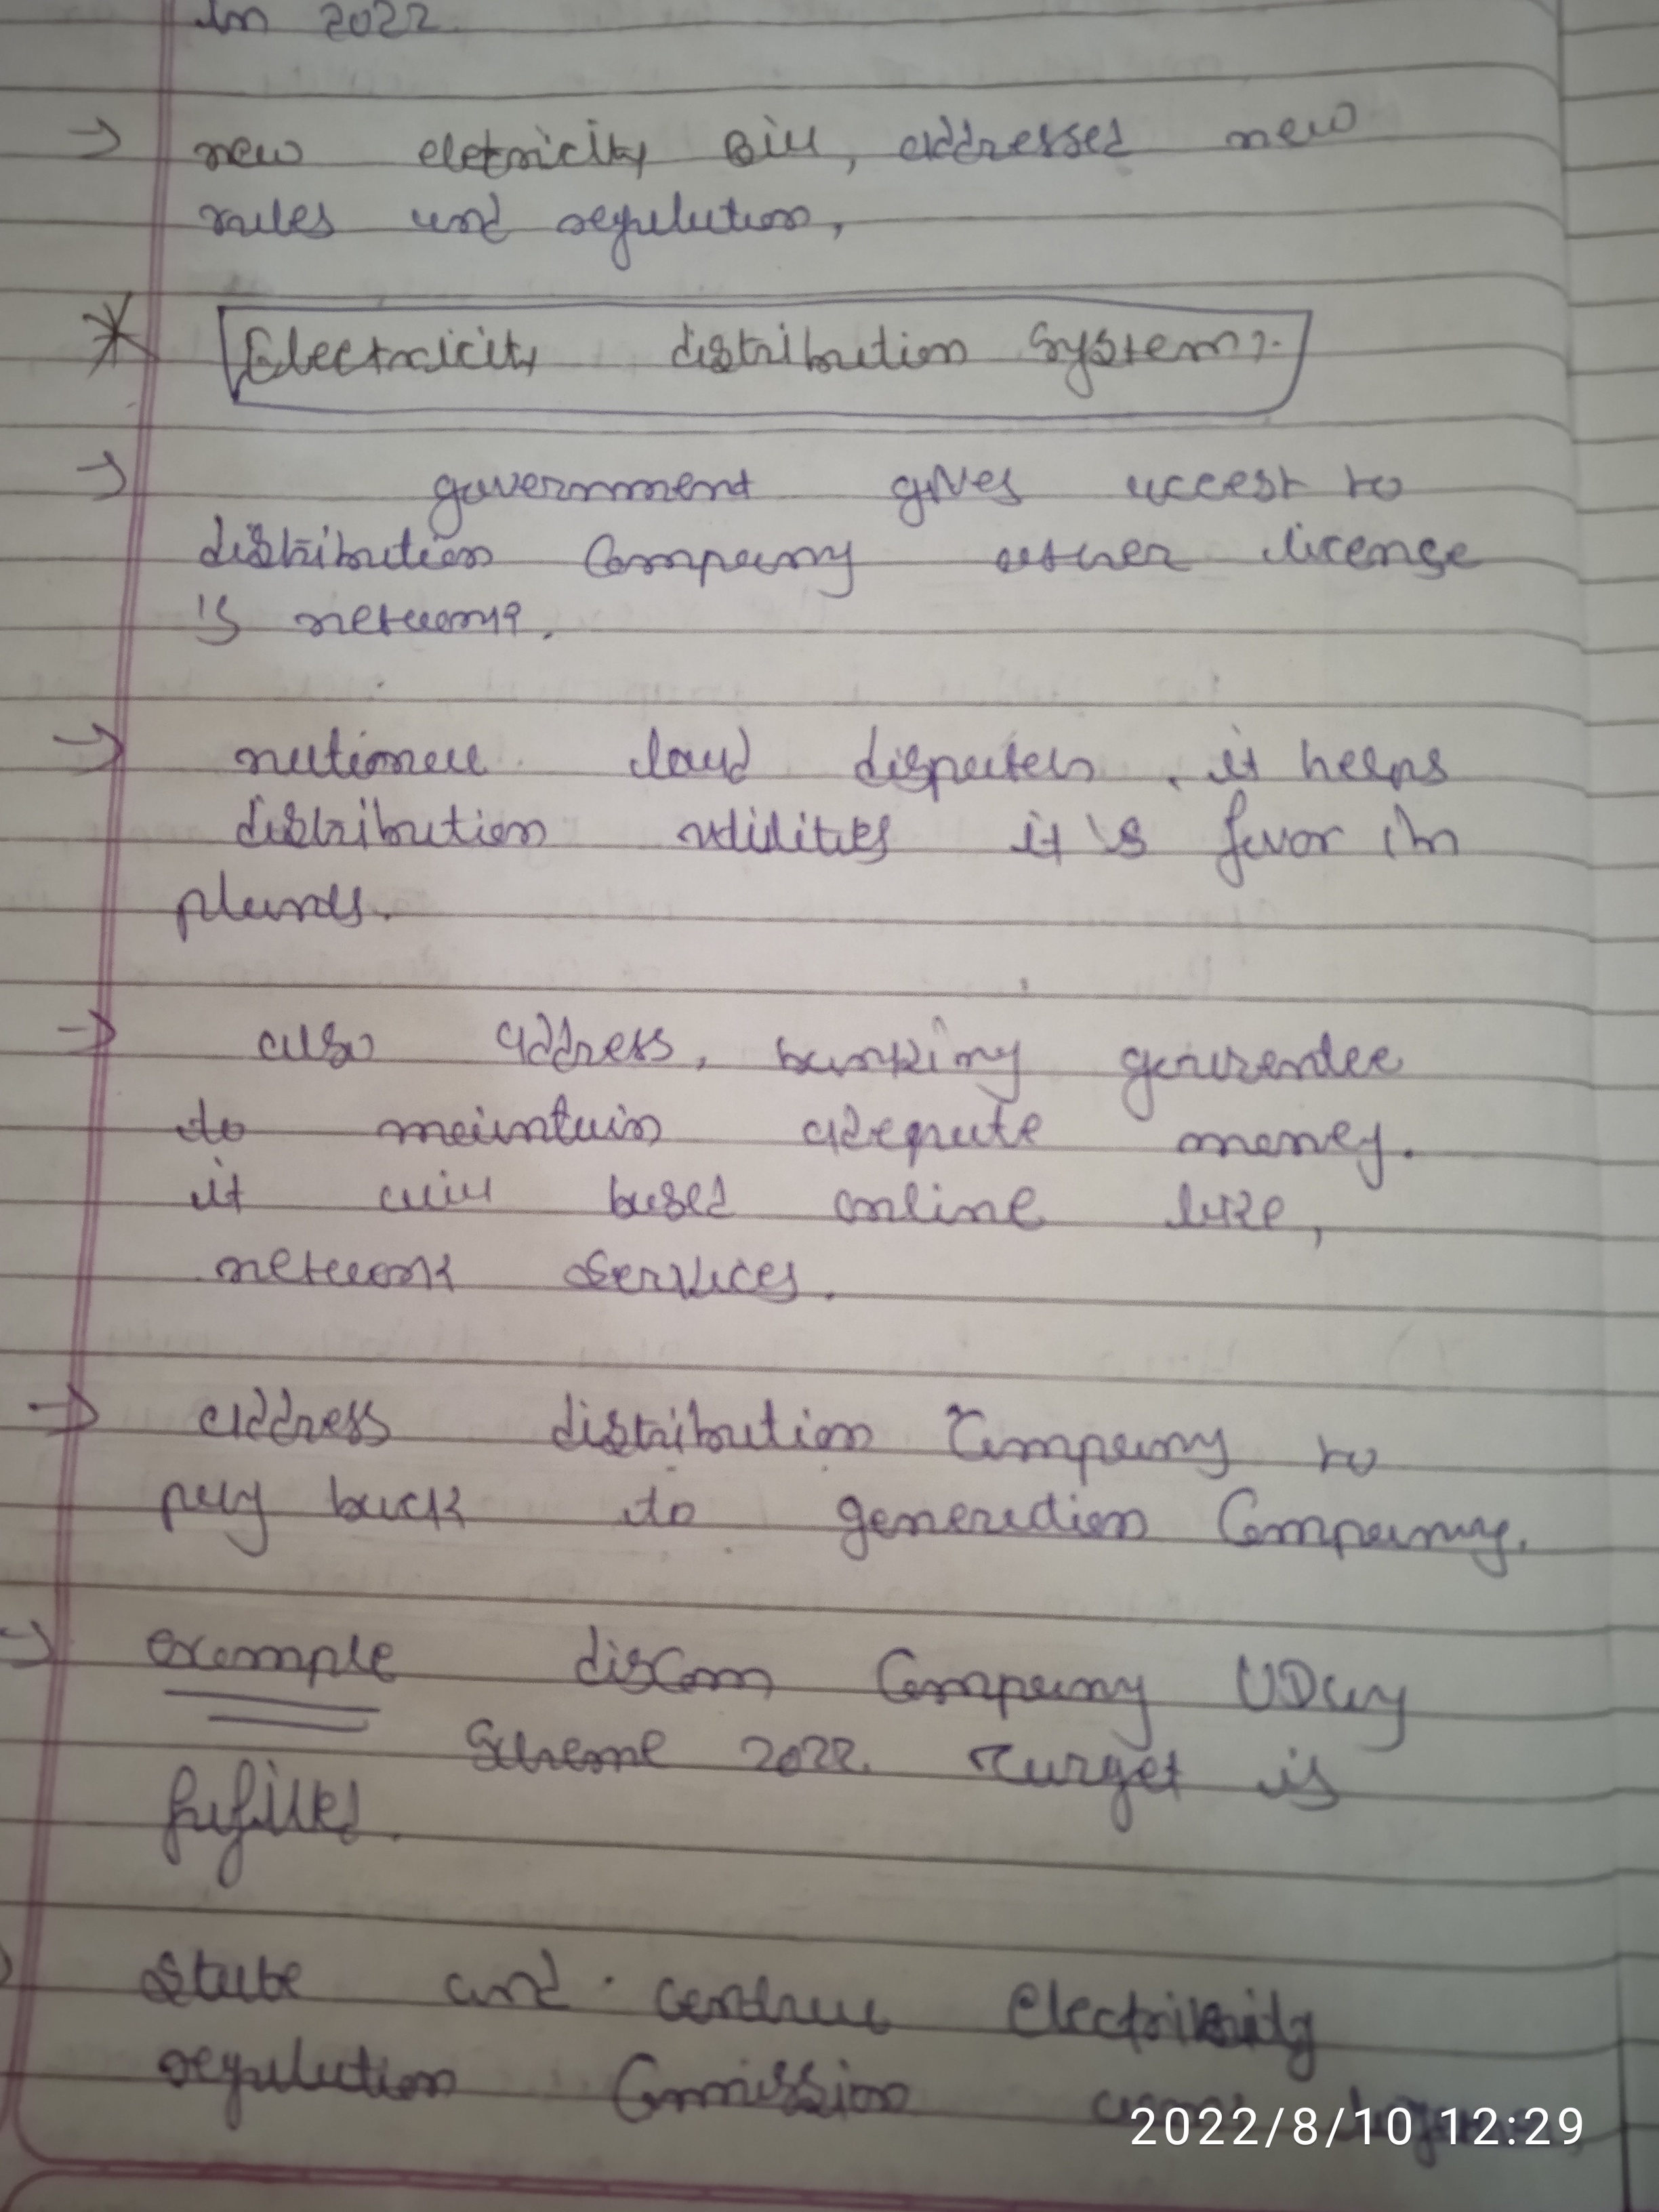 in 2022.
→ new eletricity Bill, addressed new
rules and regulation,
* Electricity distribution System :-
→ government gives accest to
distribution Company other license
is network.
→ national load dispatch. it helps
distribution utilities it's favor in
plants.
→ also address, banking gaurentee
to maintain adequate money.
it will based online like,
network services.
→ address distribution Company to
pay back to generation Company.
→ example discom Company UDay
Scheme 2022. Target is
fufilled.
State and central Electricity
regulation Commission
2022/8/10 12:29